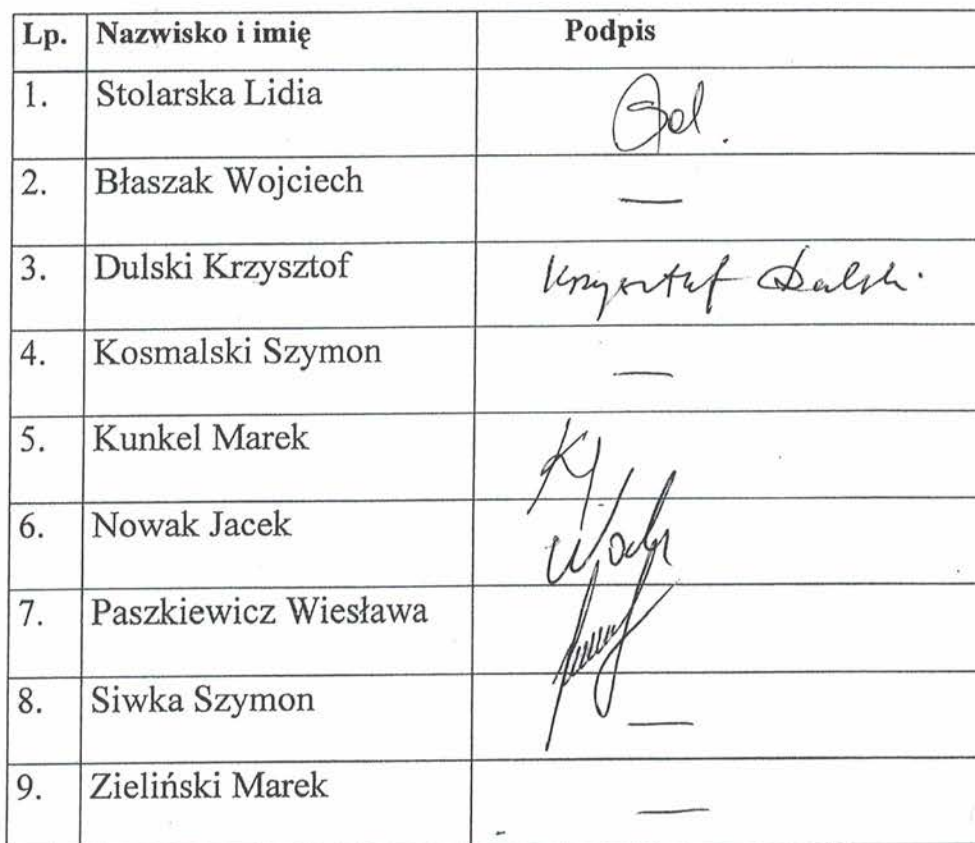 Lp. Nazwisko i imię Podpis
1. Stolarska Lidia
2. Błaszak Wojciech —
3. Dulski Krzysztof Krzysztof Dulski
4. Kosmalski Szymon —
5. Kunkel Marek
6. Nowak Jacek
7. Paszkiewicz Wiesława
8. Siwka Szymon —
9. Zieliński Marek —